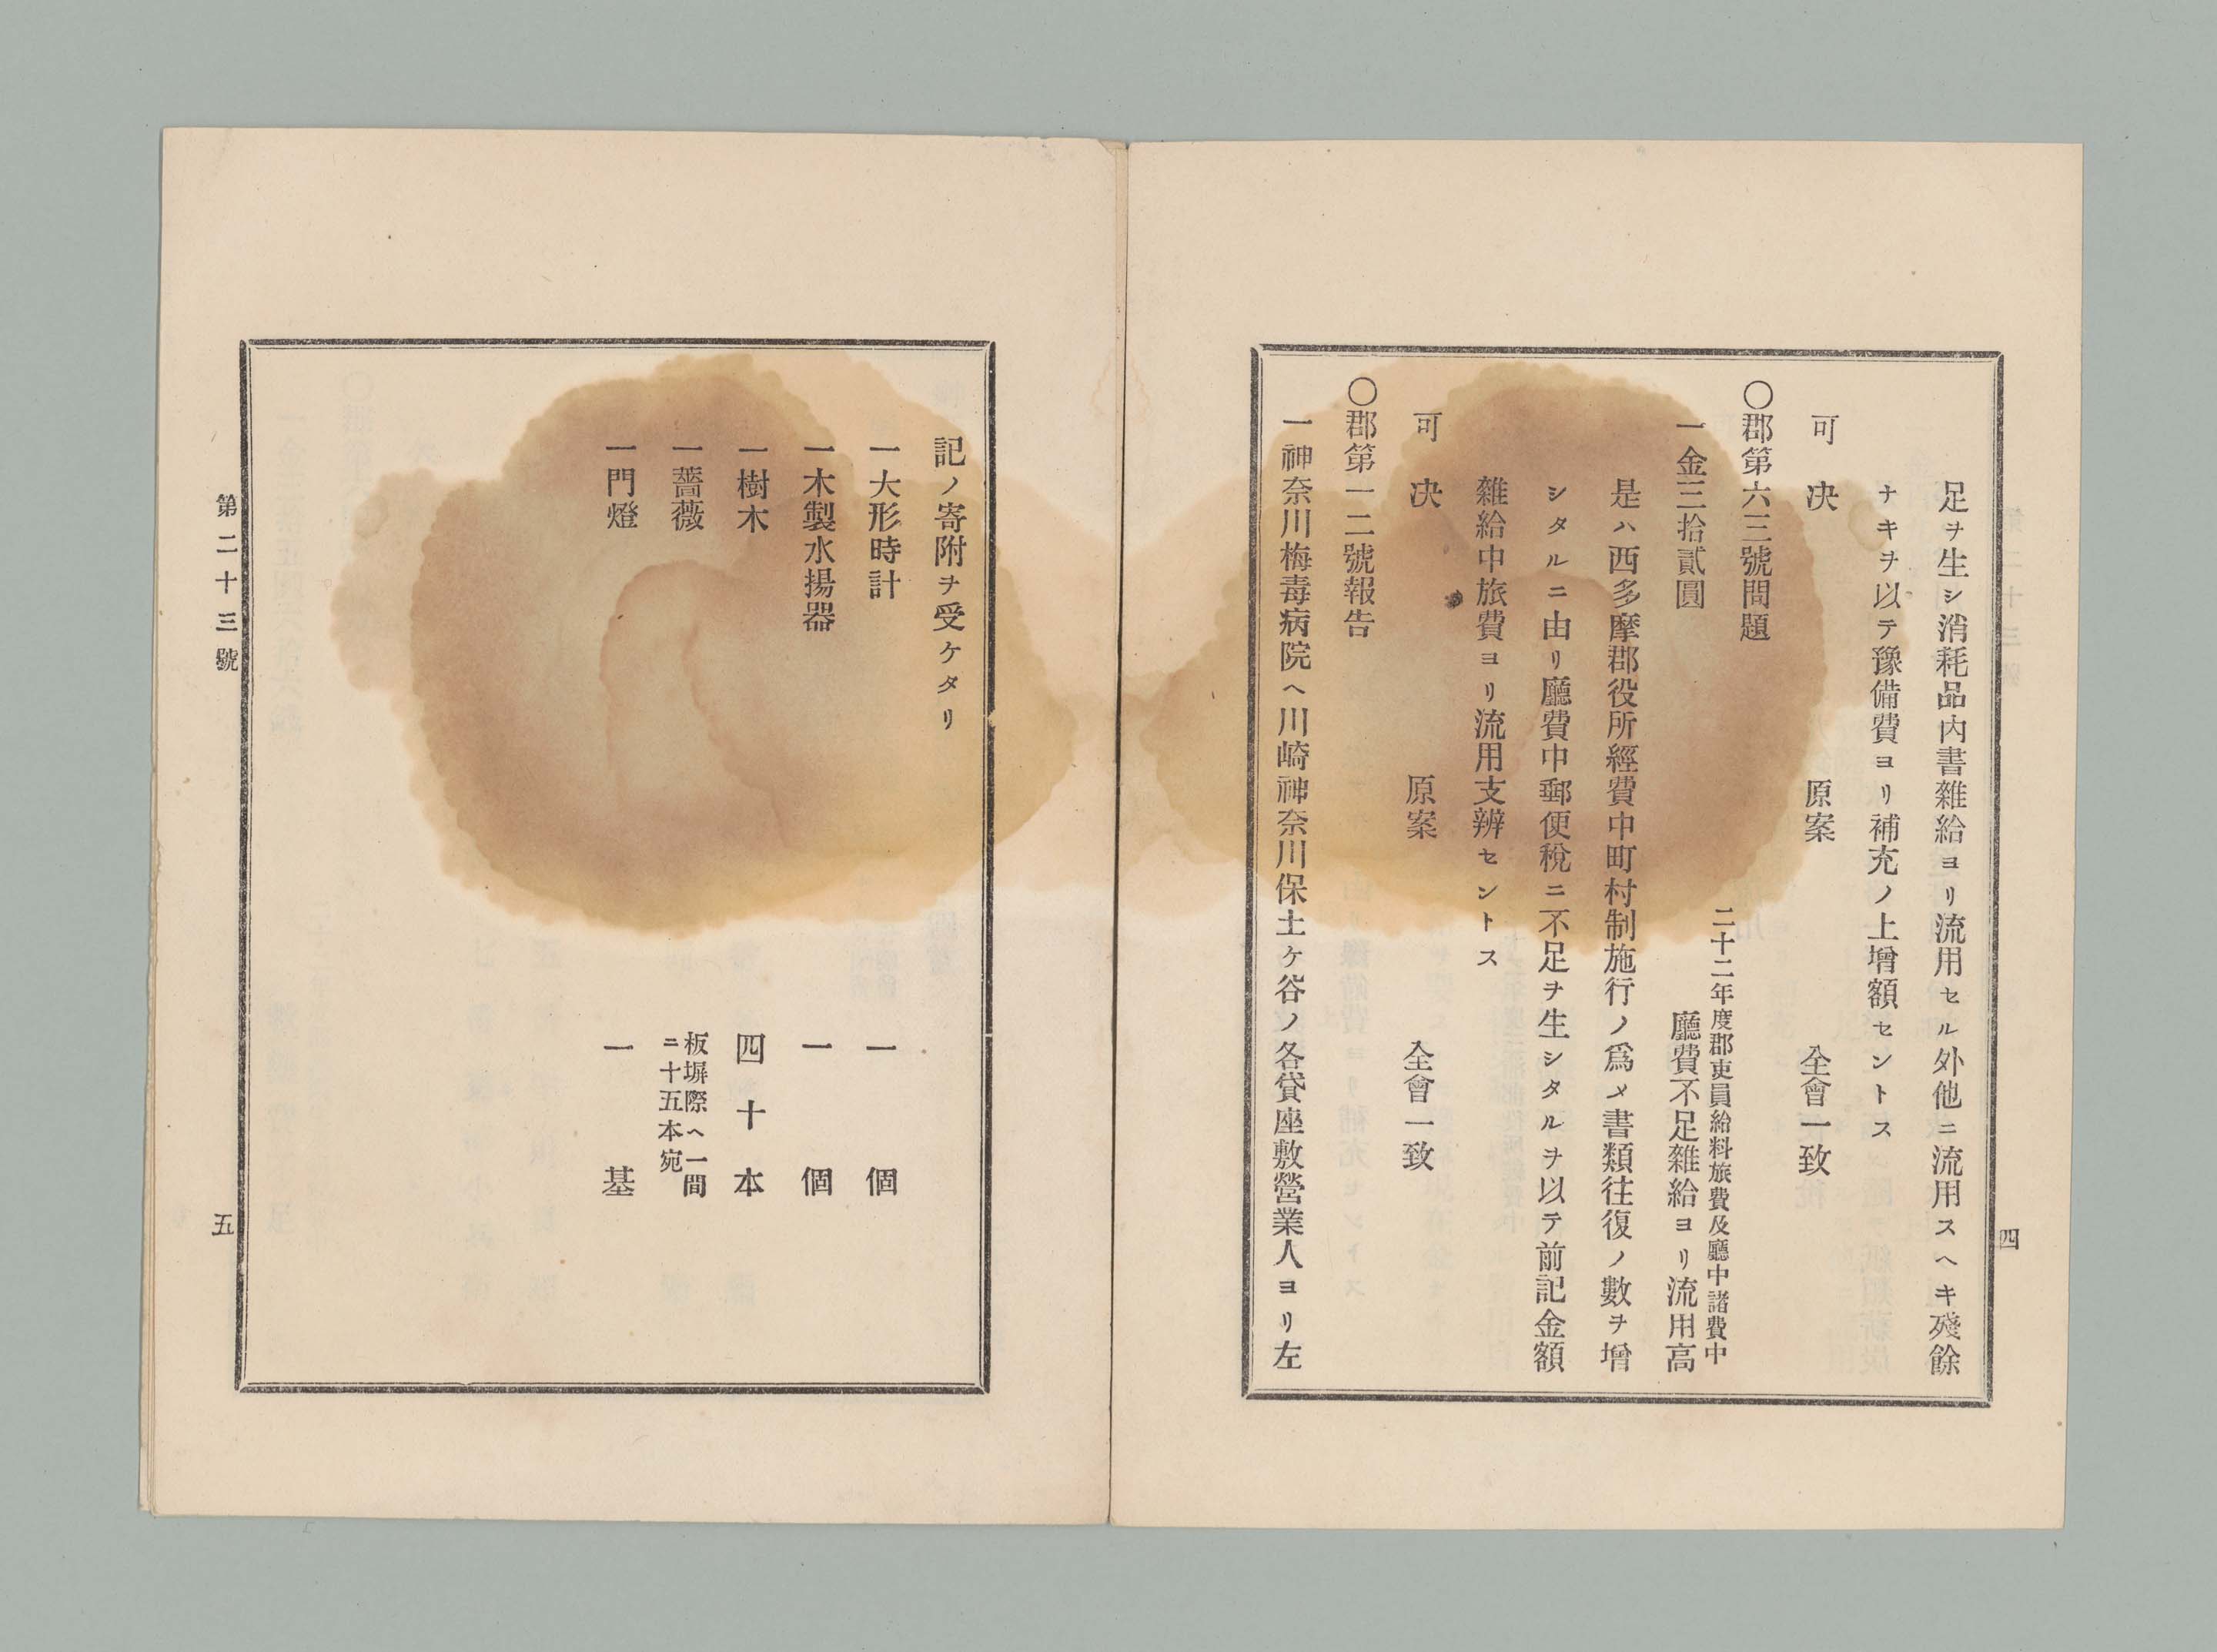 足ヲ生シ消耗品内書雜給ヨリ流用セル外他ニ流用スヘキ殘餘
ナキヲ以テ豫備費ヨリ補充ノ上增額セントス
可決 原案 全會一致
〇郡第六三號問題
一金三拾貳圓 二十二年度郡吏員給料旅費及廳中諸費中
廳費不足雜給ヨリ流用高
是ハ西多摩郡役所經費中町村制施行ノ爲メ書類往復ノ數ヲ增
シタルニ由リ廳費中郵便稅ニ不足ヲ生シタルヲ以テ前記金額
雜給中旅費ヨリ流用支辨セントス
可決 原案 全會一致
〇郡第一二號報告
一神奈川梅毒病院ヘ川崎神奈川保土ケ谷ノ各貸座敷營業人ヨリ左
四
記ノ寄附ヲ受ケタリ
一大形時計 一個
一木製水揚器 一個
一樹木 四十本
一薔薇 板塀際ヘ一間
ニ十五本宛
一門燈 一基
第二十三號
五